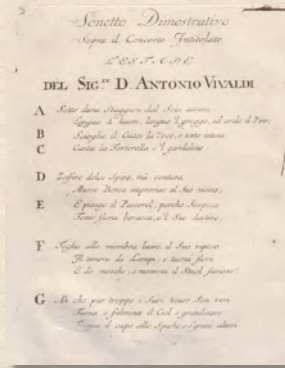 Sonetto Dimostrativo
Sopra il Concerto Intitolato
L'ESTADE
DEL SIG.RE D. ANTONIO VIVALDI
A Sotto dura Staggion dal Sole accesa
Langue l'huom, langue 'l gregge, ed arde il Pino;
B Scioglie il Cucco la Voce, e tosto intesa
C Canta la Tortorella e 'l gardelino.
D Zeffiro dolce Spira, mà contesa
Muove Borea improviso al Suo vicino;
E E piange il Pastorel, perche Sospesa
Teme fiera borasca, e 'l Suo destino;
F Toglie alle membra lasse il Suo riposo
Il timore de' Lampi, e tuoni fieri
E de mosche, e mosconi il Stuol furioso!
G Ah che pur troppo i Suoi timor Son veri
Tuona e fulmina il Ciel e grandinoso
Tronca il capo alle Spiche e a' grani alteri